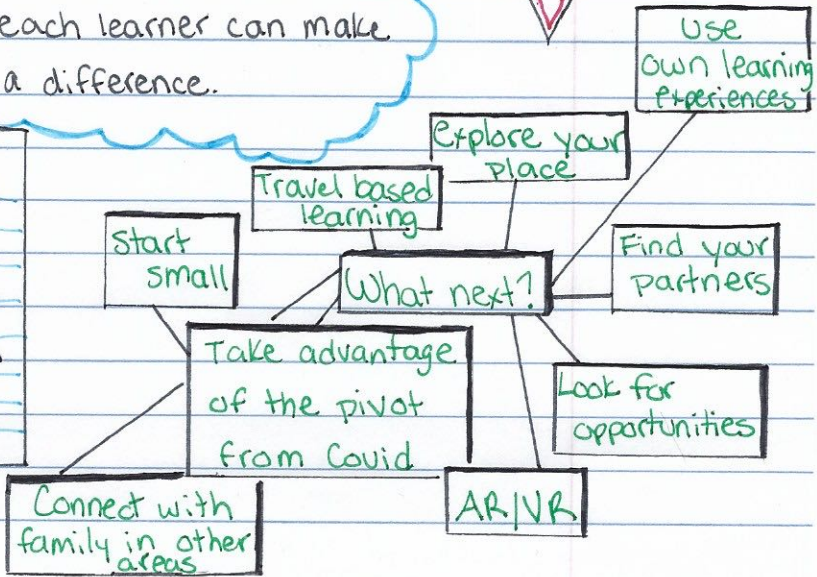 each learner can make
a difference.
Use
own learning
experiences
Explore your
place
Travel based
learning
Start
small
What next?
Find your
partners
Take advantage
of the pivot
from Covid
Look for
opportunities
Connect with
family in other
areas
AR/VR